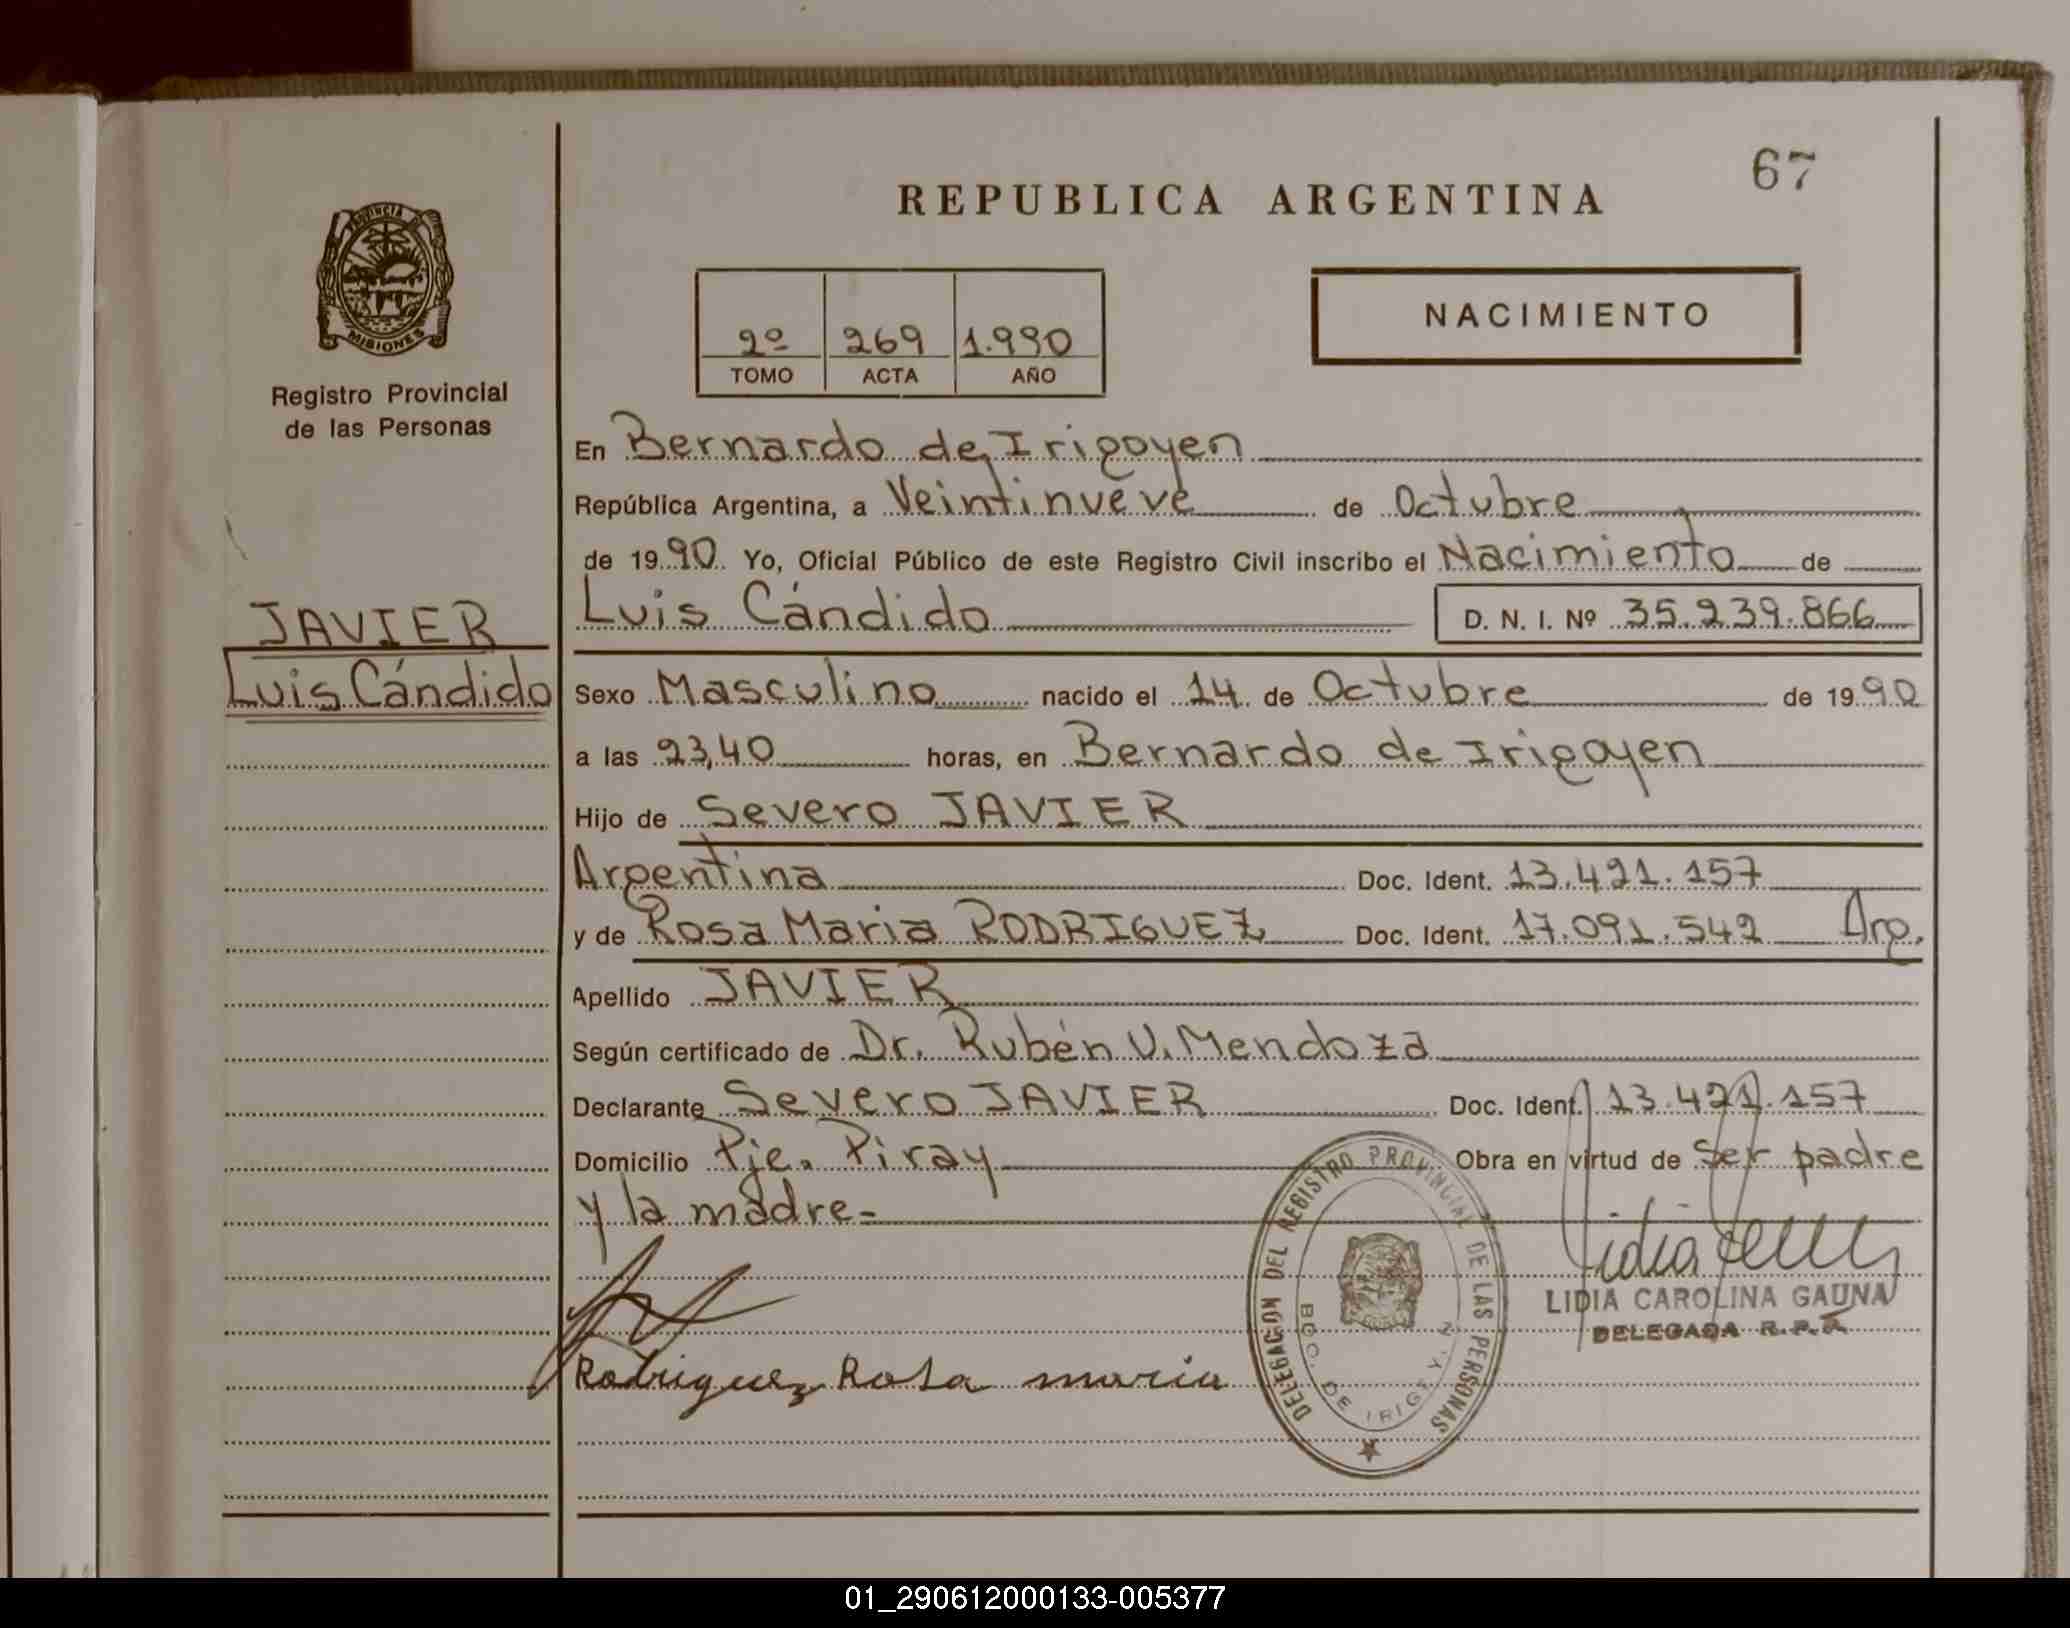 67
REPUBLICA ARGENTINA
PROVINCIA DE
MISIONES
Registro Provincial
de las Personas
2º 269 1.990
TOMO ACTA AÑO
NACIMIENTO
En Bernardo de Irigoyen
República Argentina, a Veintinueve de Octubre
de 1990 Yo, Oficial Público de este Registro Civil inscribo el Nacimiento de
JAVIER
Luis Cándido
Luis Cándido D. N. I. Nº 35.239.866
Sexo Masculino nacido el 14 de Octubre de 1990
a las 23,40 horas, en Bernardo de Irigoyen
Hijo de Severo JAVIER
Argentina Doc. Ident. 13.421.157
y de Rosa Maria RODRIGUEZ Doc. Ident. 17.091.542 Arg.
Apellido JAVIER
Según certificado de Dr. Rubén V. Mendoza
Declarante Severo JAVIER Doc. Ident. 13.421.157
Domicilio Pje. Piray Obra en virtud de Ser padre
y la madre.-
DELEGACION DEL REGISTRO PROVINCIAL DE LAS PERSONAS
BDO. DE IRIGOYEN
LIDIA CAROLINA GAUNA
DELEGADA R.P.P.
Rodriguez Rosa maria
01_290612000133-005377